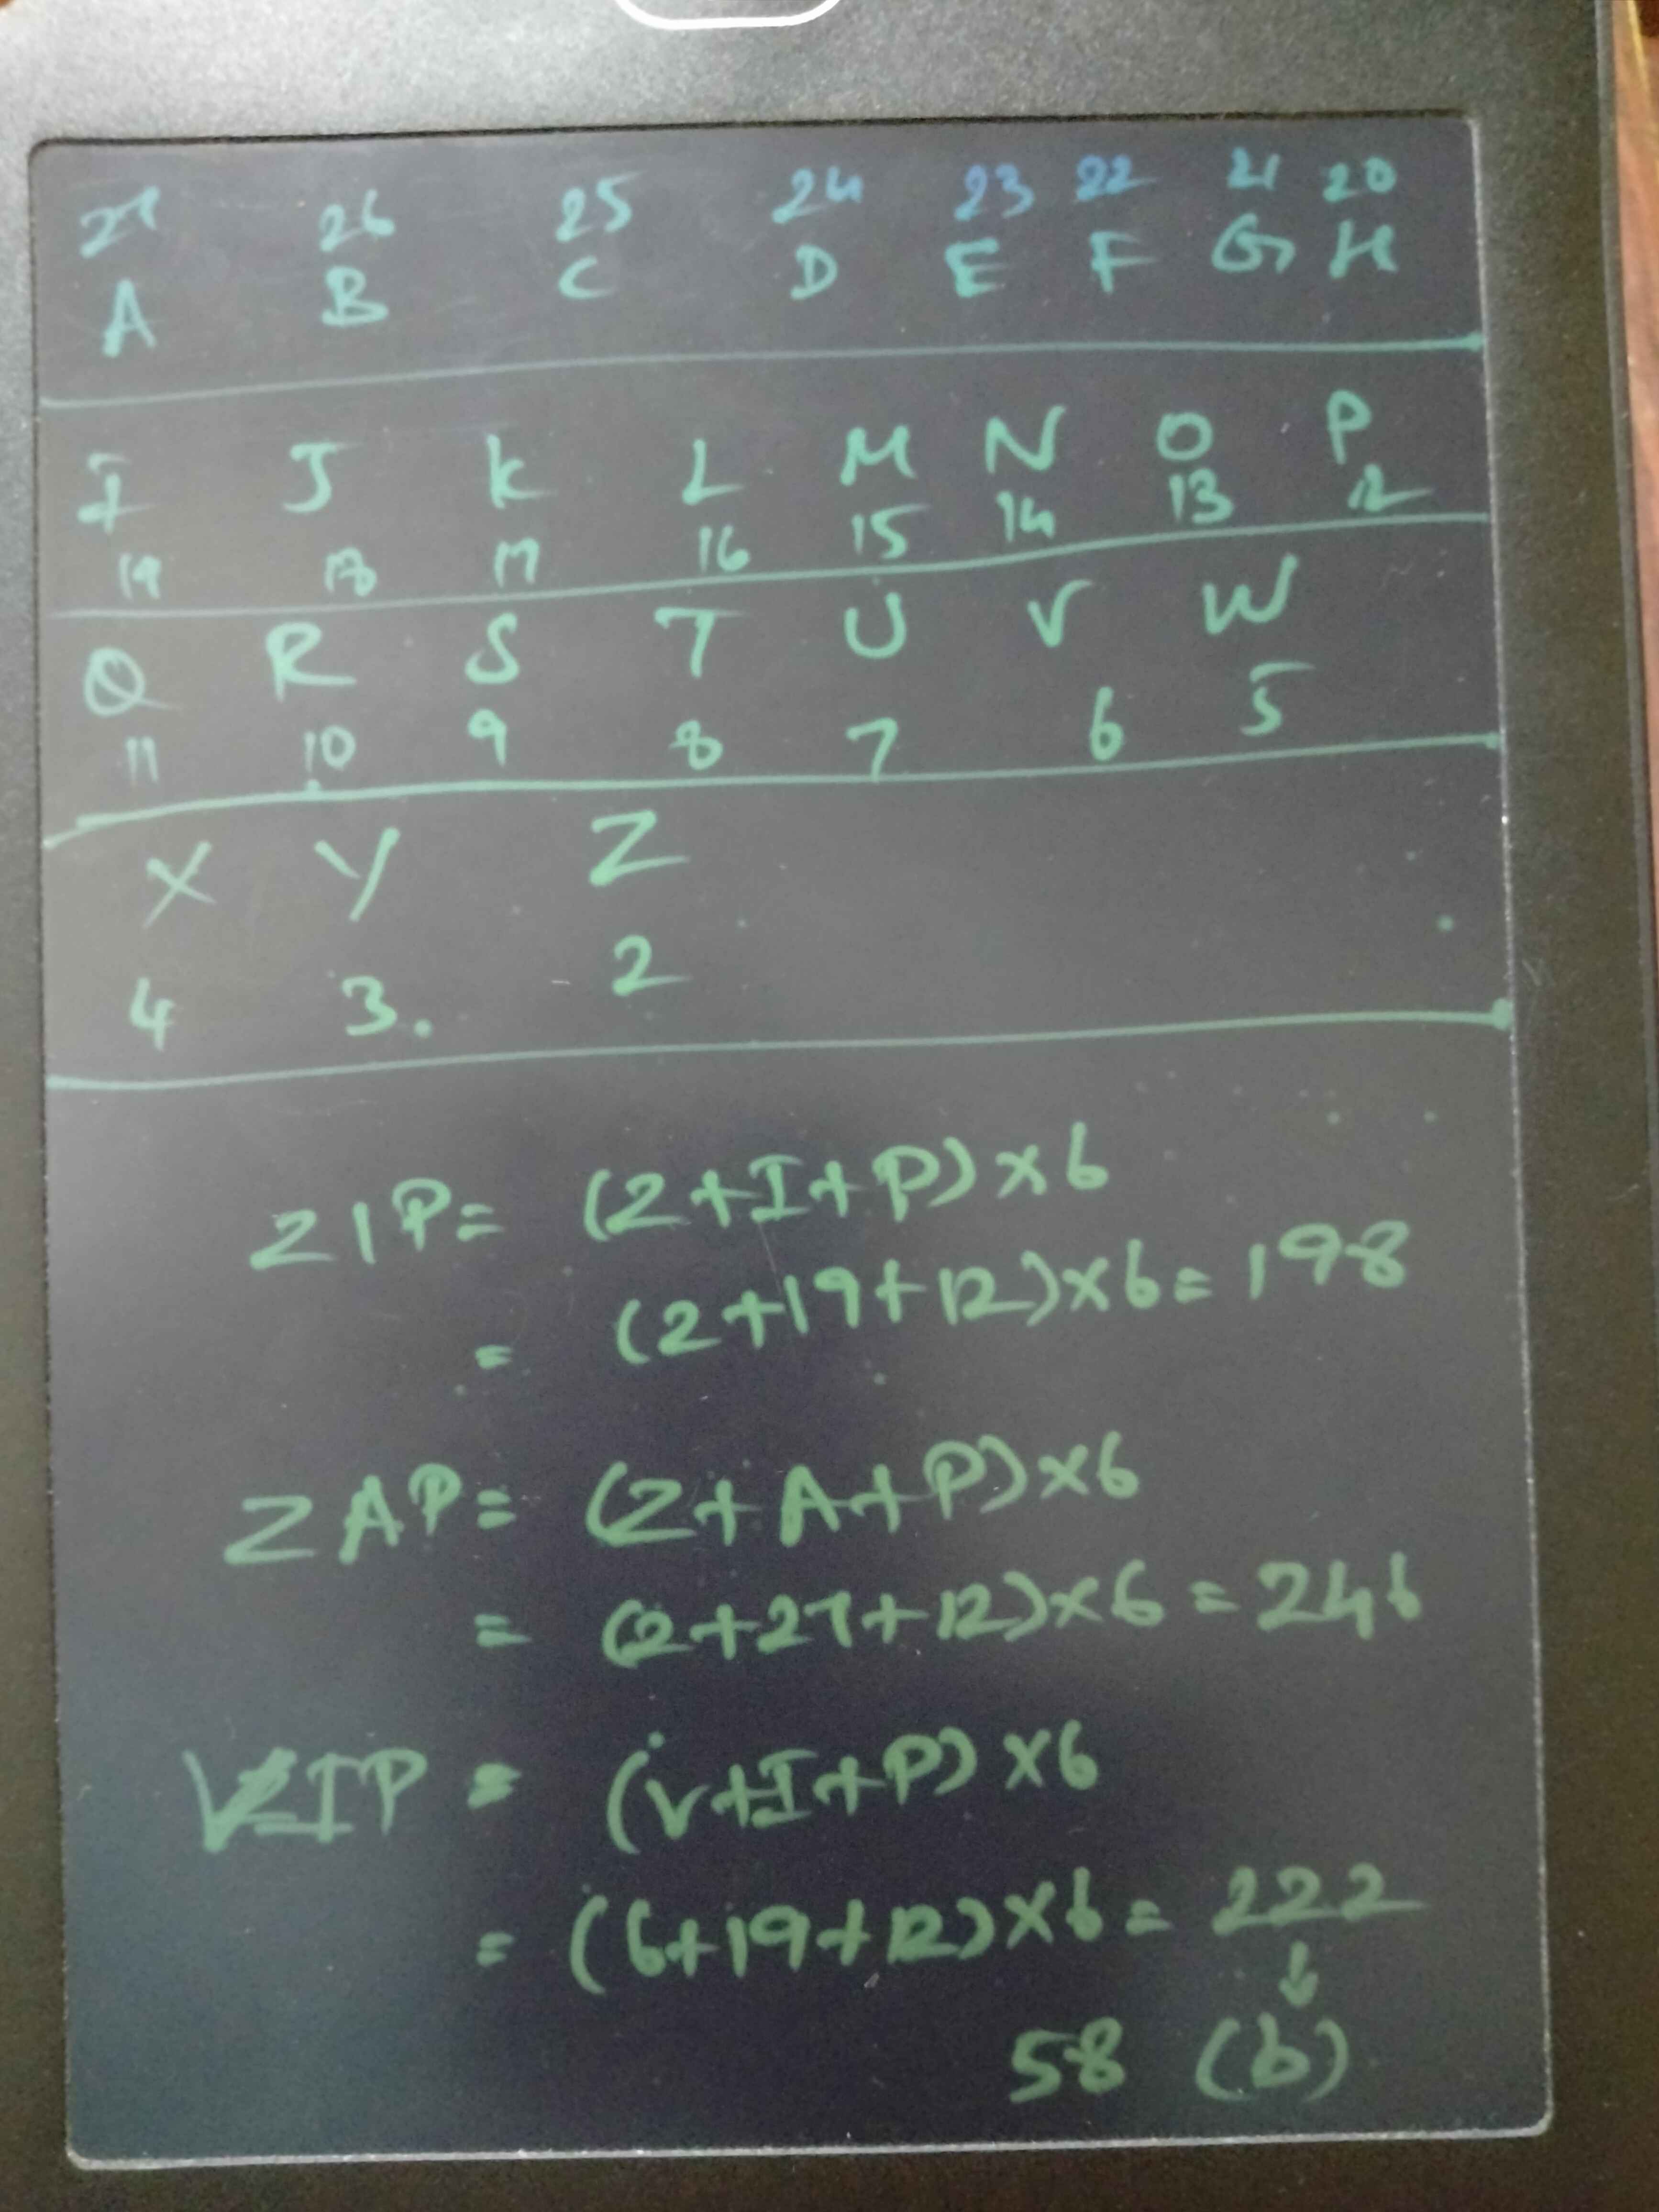 27 26 25 24 23 22 21 20
A B C D E F G H
I J K L M N O P
19 18 17 16 15 14 13 12
Q R S T U V W
11 10 9 8 7 6 5
X Y Z
4 3. 2
ZIP = (Z+I+P)×6
= (2+19+12)×6 = 198
ZAP = (Z+A+P)×6
= (2+27+12)×6 = 246
VIP = (V+I+P)×6
= (6+19+12)×6 = 222
↓
58 (b)